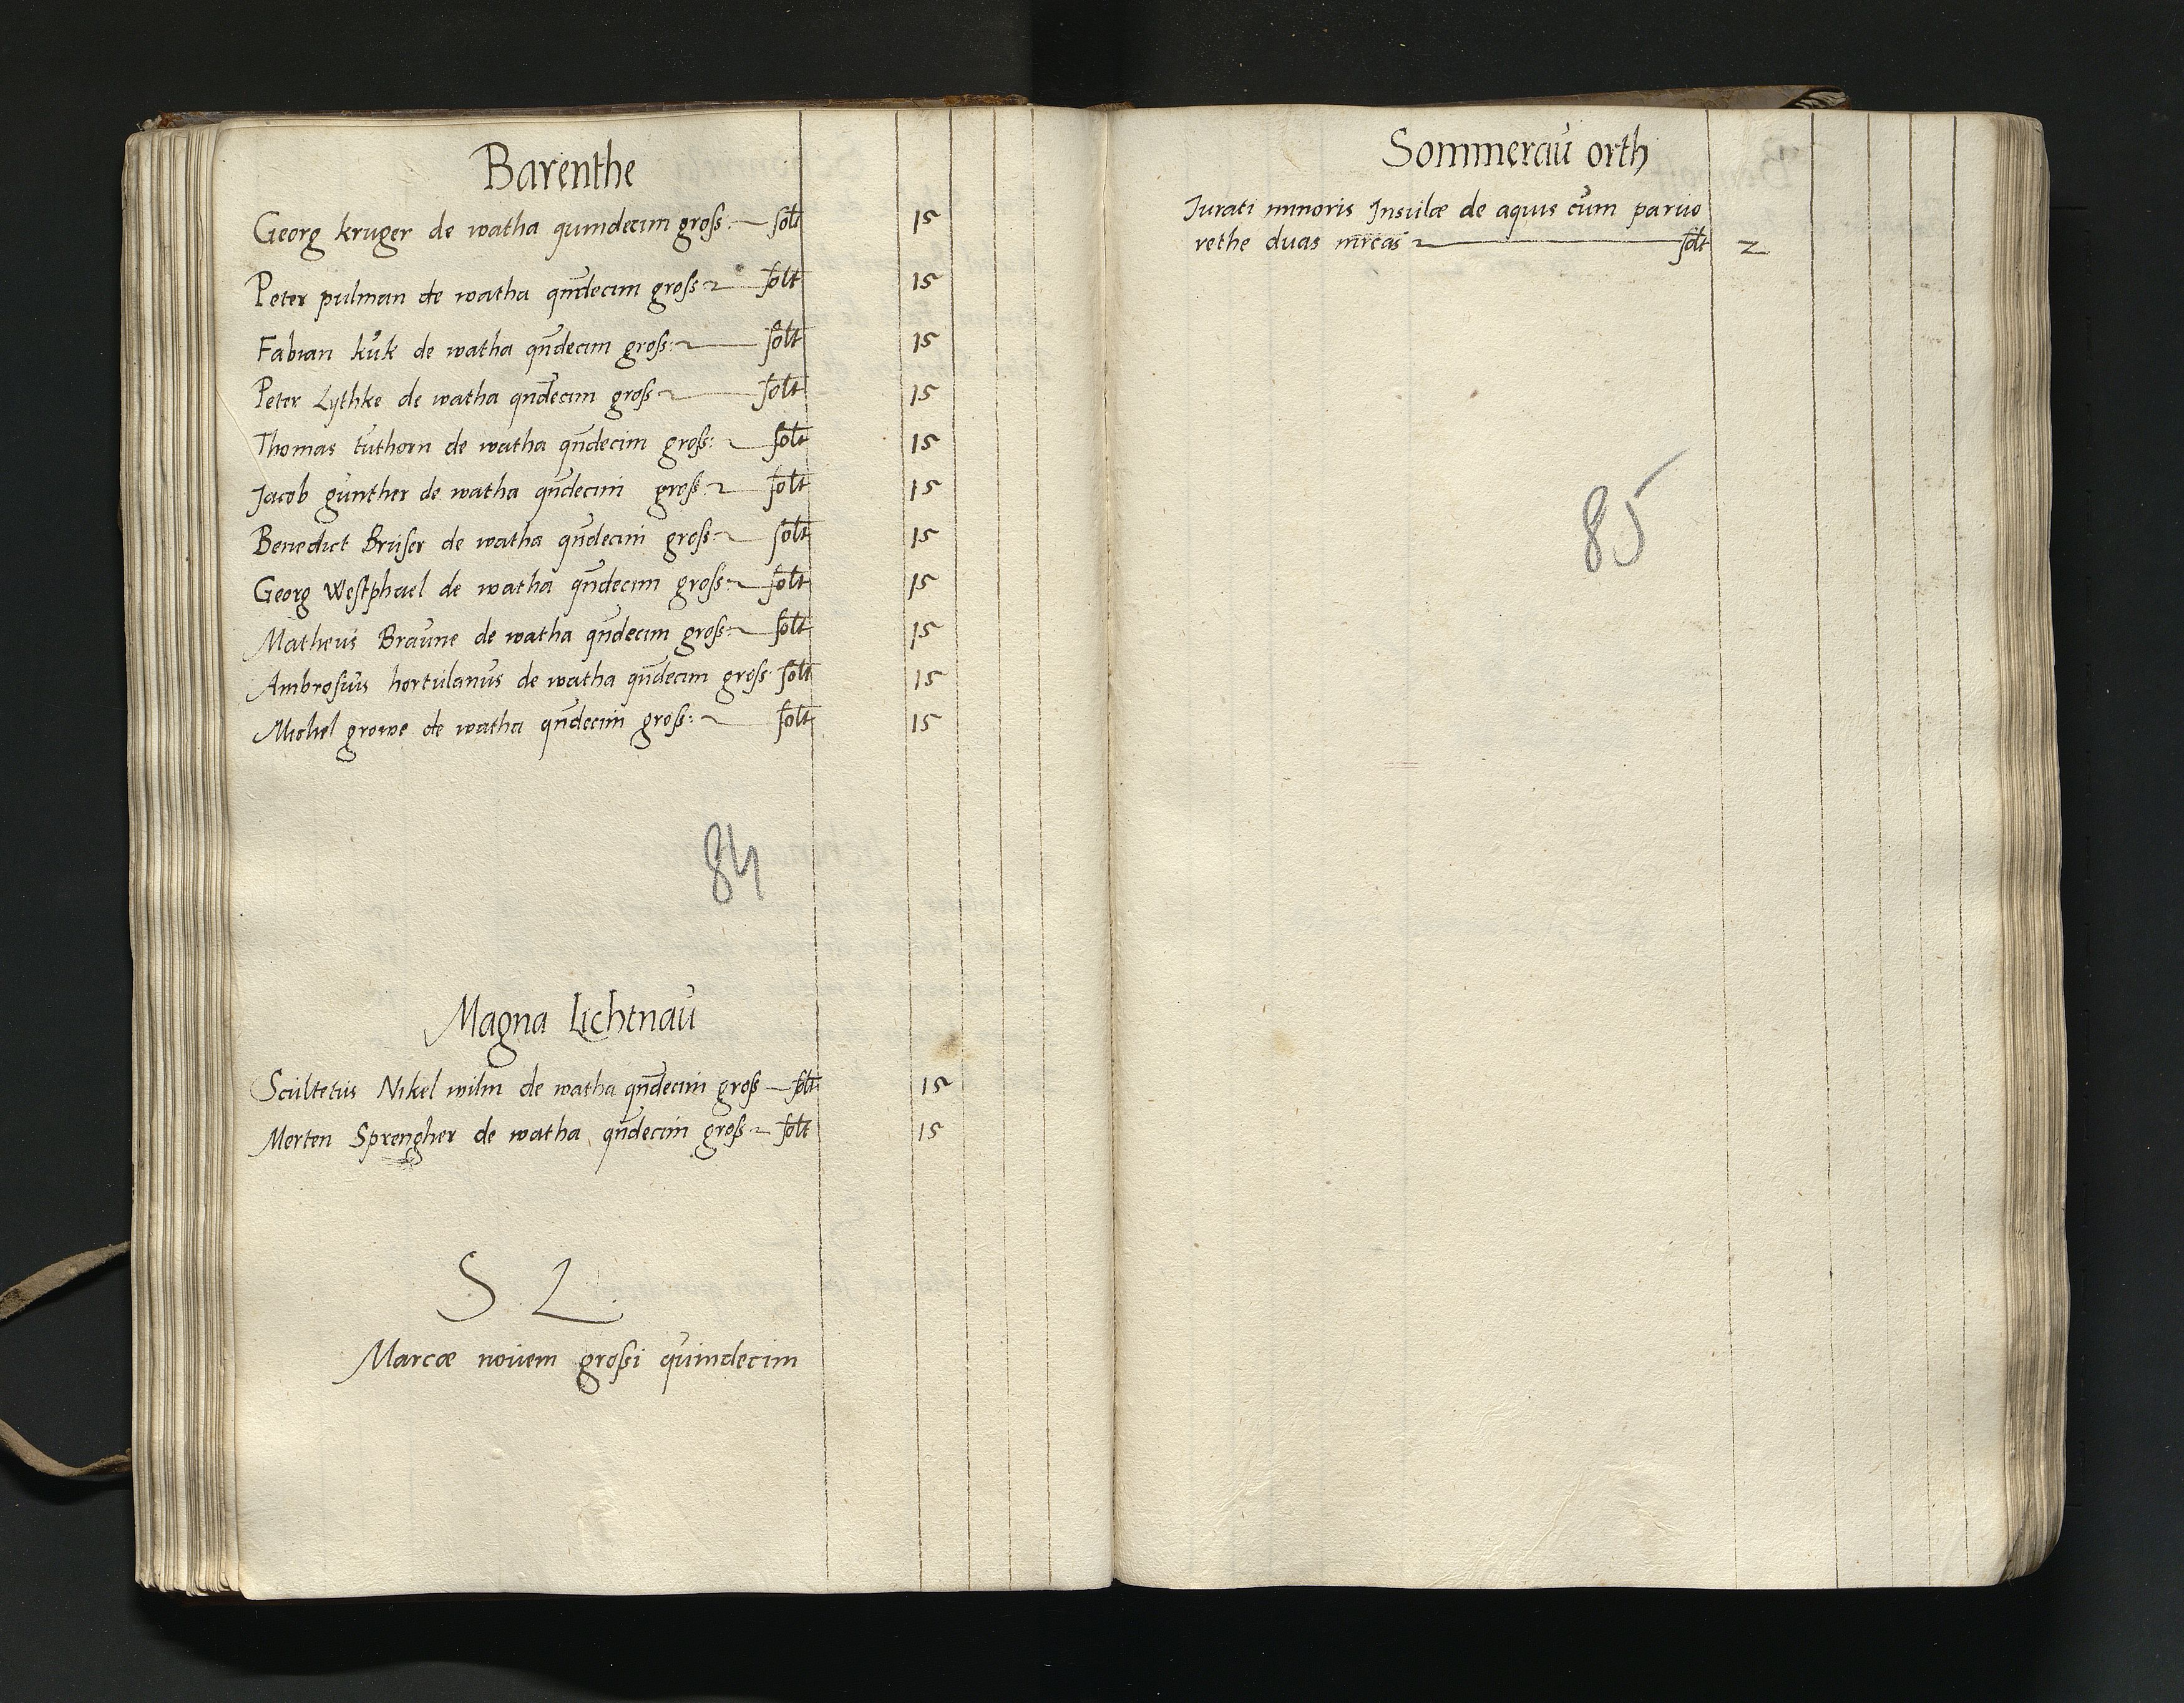 Barenthe
Georg kruger de watha quindecim groß: solt 15
Peter pulman de watha qn̄decim groß solt 15
Fabian kůk de watha qn̄decim groß: solt 15
Peter Lythke de watha qn̄decim groß solt 15
Thomas tuthorn de watha qn̄decim groß: solt 15
Jacob gunther de watha qn̄decim groß: solt 15
Benedict Bruser de watha qn̄decim groß: solt 15
Georg Westphael de watha qn̄decim groß: solt 15
Matheus Braune de watha qn̄decim groß: solt 15
Ambrosius hortulanus de watha qn̄decim groß solt 15
Michel growe de watha qn̄decim groß: solt 15
84
Magna Lichtnau
Scultetus Nikel wilm de watha qn̄decim groß solt 15
Merten Sprengher de watha qn̄decim groß solt 15
S. L.
Marcæ novem großi quindecim
Sommerau orth
Jurati minoris Insulæ de aquis cum paruo
rethe duas mrcas solt 2
85